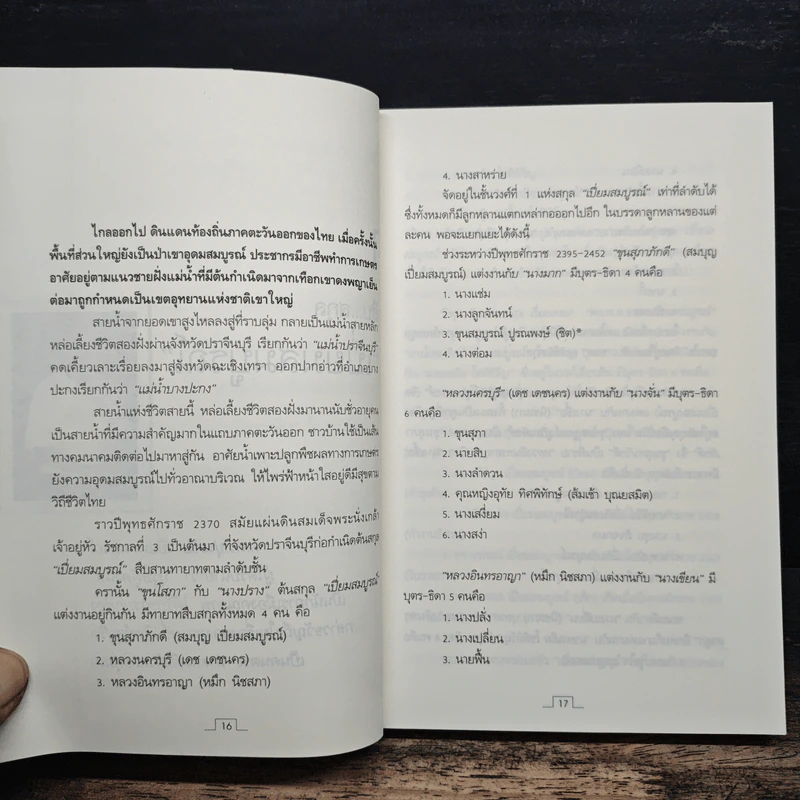 ไกลออกไป ดินแดนท้องถิ่นภาคตะวันออกของไทย เมื่อครั้งนั้น
พื้นที่ส่วนใหญ่ยังเป็นป่าเขาอุดมสมบูรณ์ ประชากรมีอาชีพทำการเกษตร
อาศัยอยู่ตามแนวชายฝั่งแม่น้ำที่มีต้นกำเนิดมาจากเทือกเขาดงพญาเย็น
ต่อมาถูกกำหนดเป็นเขตอุทยานแห่งชาติเขาใหญ่
สายน้ำจากยอดเขาสูงไหลลงสู่ที่ราบลุ่ม กลายเป็นแม่น้ำสายหลัก
หล่อเลี้ยงชีวิตสองฝั่งผ่านจังหวัดปราจีนบุรี เรียกกันว่า "แม่น้ำปราจีนบุรี"
คดเคี้ยวเลาะเรื่อยลงมาสู่จังหวัดฉะเชิงเทรา ออกปากอ่าวที่อำเภอบาง
ปะกงเรียกกันว่า "แม่น้ำบางปะกง"
สายน้ำแห่งชีวิตสายนี้ หล่อเลี้ยงชีวิตสองฝั่งมานานนับชั่วอายุคน
เป็นสายน้ำที่มีความสำคัญมากในแถบภาคตะวันออก ชาวบ้านใช้เป็นเส้น
ทางคมนาคมติดต่อไปมาหาสู่กัน อาศัยน้ำเพาะปลูกพืชผลทางการเกษตร
ยังความอุดมสมบูรณ์ไปทั่วอาณาบริเวณ ให้ไพร่ฟ้าหน้าใสอยู่ดีมีสุขตาม
วิถีชีวิตไทย
ราวปีพุทธศักราช 2370 สมัยแผ่นดินสมเด็จพระนั่งเกล้า
เจ้าอยู่หัว รัชกาลที่ 3 เป็นต้นมา ที่จังหวัดปราจีนบุรีก่อกำเนิดต้นสกุล
"เปี่ยมสมบูรณ์" สืบสานทายาทตามลำดับชั้น
ครานั้น "ขุนโสภา" กับ "นางปราง" ต้นสกุล "เปี่ยมสมบูรณ์"
แต่งงานอยู่กินกัน มีทายาทสืบสกุลทั้งหมด 4 คน คือ
1. ขุนสุภาภักดี (สมบุญ เปี่ยมสมบูรณ์)
2. หลวงนครบุรี (เดช เดชนคร)
3. หลวงอินทรอาญา (หมึก นิชสภา)
16
4. นางสาหร่าย
จัดอยู่ในชั้นวงศ์ที่ 1 แห่งสกุล "เปี่ยมสมบูรณ์" เท่าที่ลำดับได้
ซึ่งทั้งหมดก็มีลูกหลานแตกเหล่ากอออกไปอีก ในบรรดาลูกหลานของแต่
ละคน พอจะแยกแยะได้ดังนี้
ช่วงระหว่างปีพุทธศักราช 2395-2452 "ขุนสุภาภักดี" (สมบุญ
เปี่ยมสมบูรณ์) แต่งงานกับ "นางมาก" มีบุตร-ธิดา 4 คนคือ
1. นางแช่ม
2. นางลูกจันทน์
3. ขุนสมบูรณ์ ปูรณพงษ์ (ชิต)*
4. นางต่อม
"หลวงนครบุรี" (เดช เดชนคร) แต่งงานกับ "นางจั่น" มีบุตร-ธิดา
6 คนคือ
1. ขุนสุภา
2. นายสิบ
3. นางลำดวน
4. คุณหญิงอุทัย ทิศพิทักษ์ (ส้มเช้า บุณยสมิต)
5. นางเสงี่ยม
6. นางสง่า
"หลวงอินทรอาญา" (หมึก นิชสภา) แต่งงานกับ "นางเขียน" มี
บุตร-ธิดา 5 คนคือ
1. นางปลั่ง
2. นางเปลี่ยน
3. นายฟื้น
17